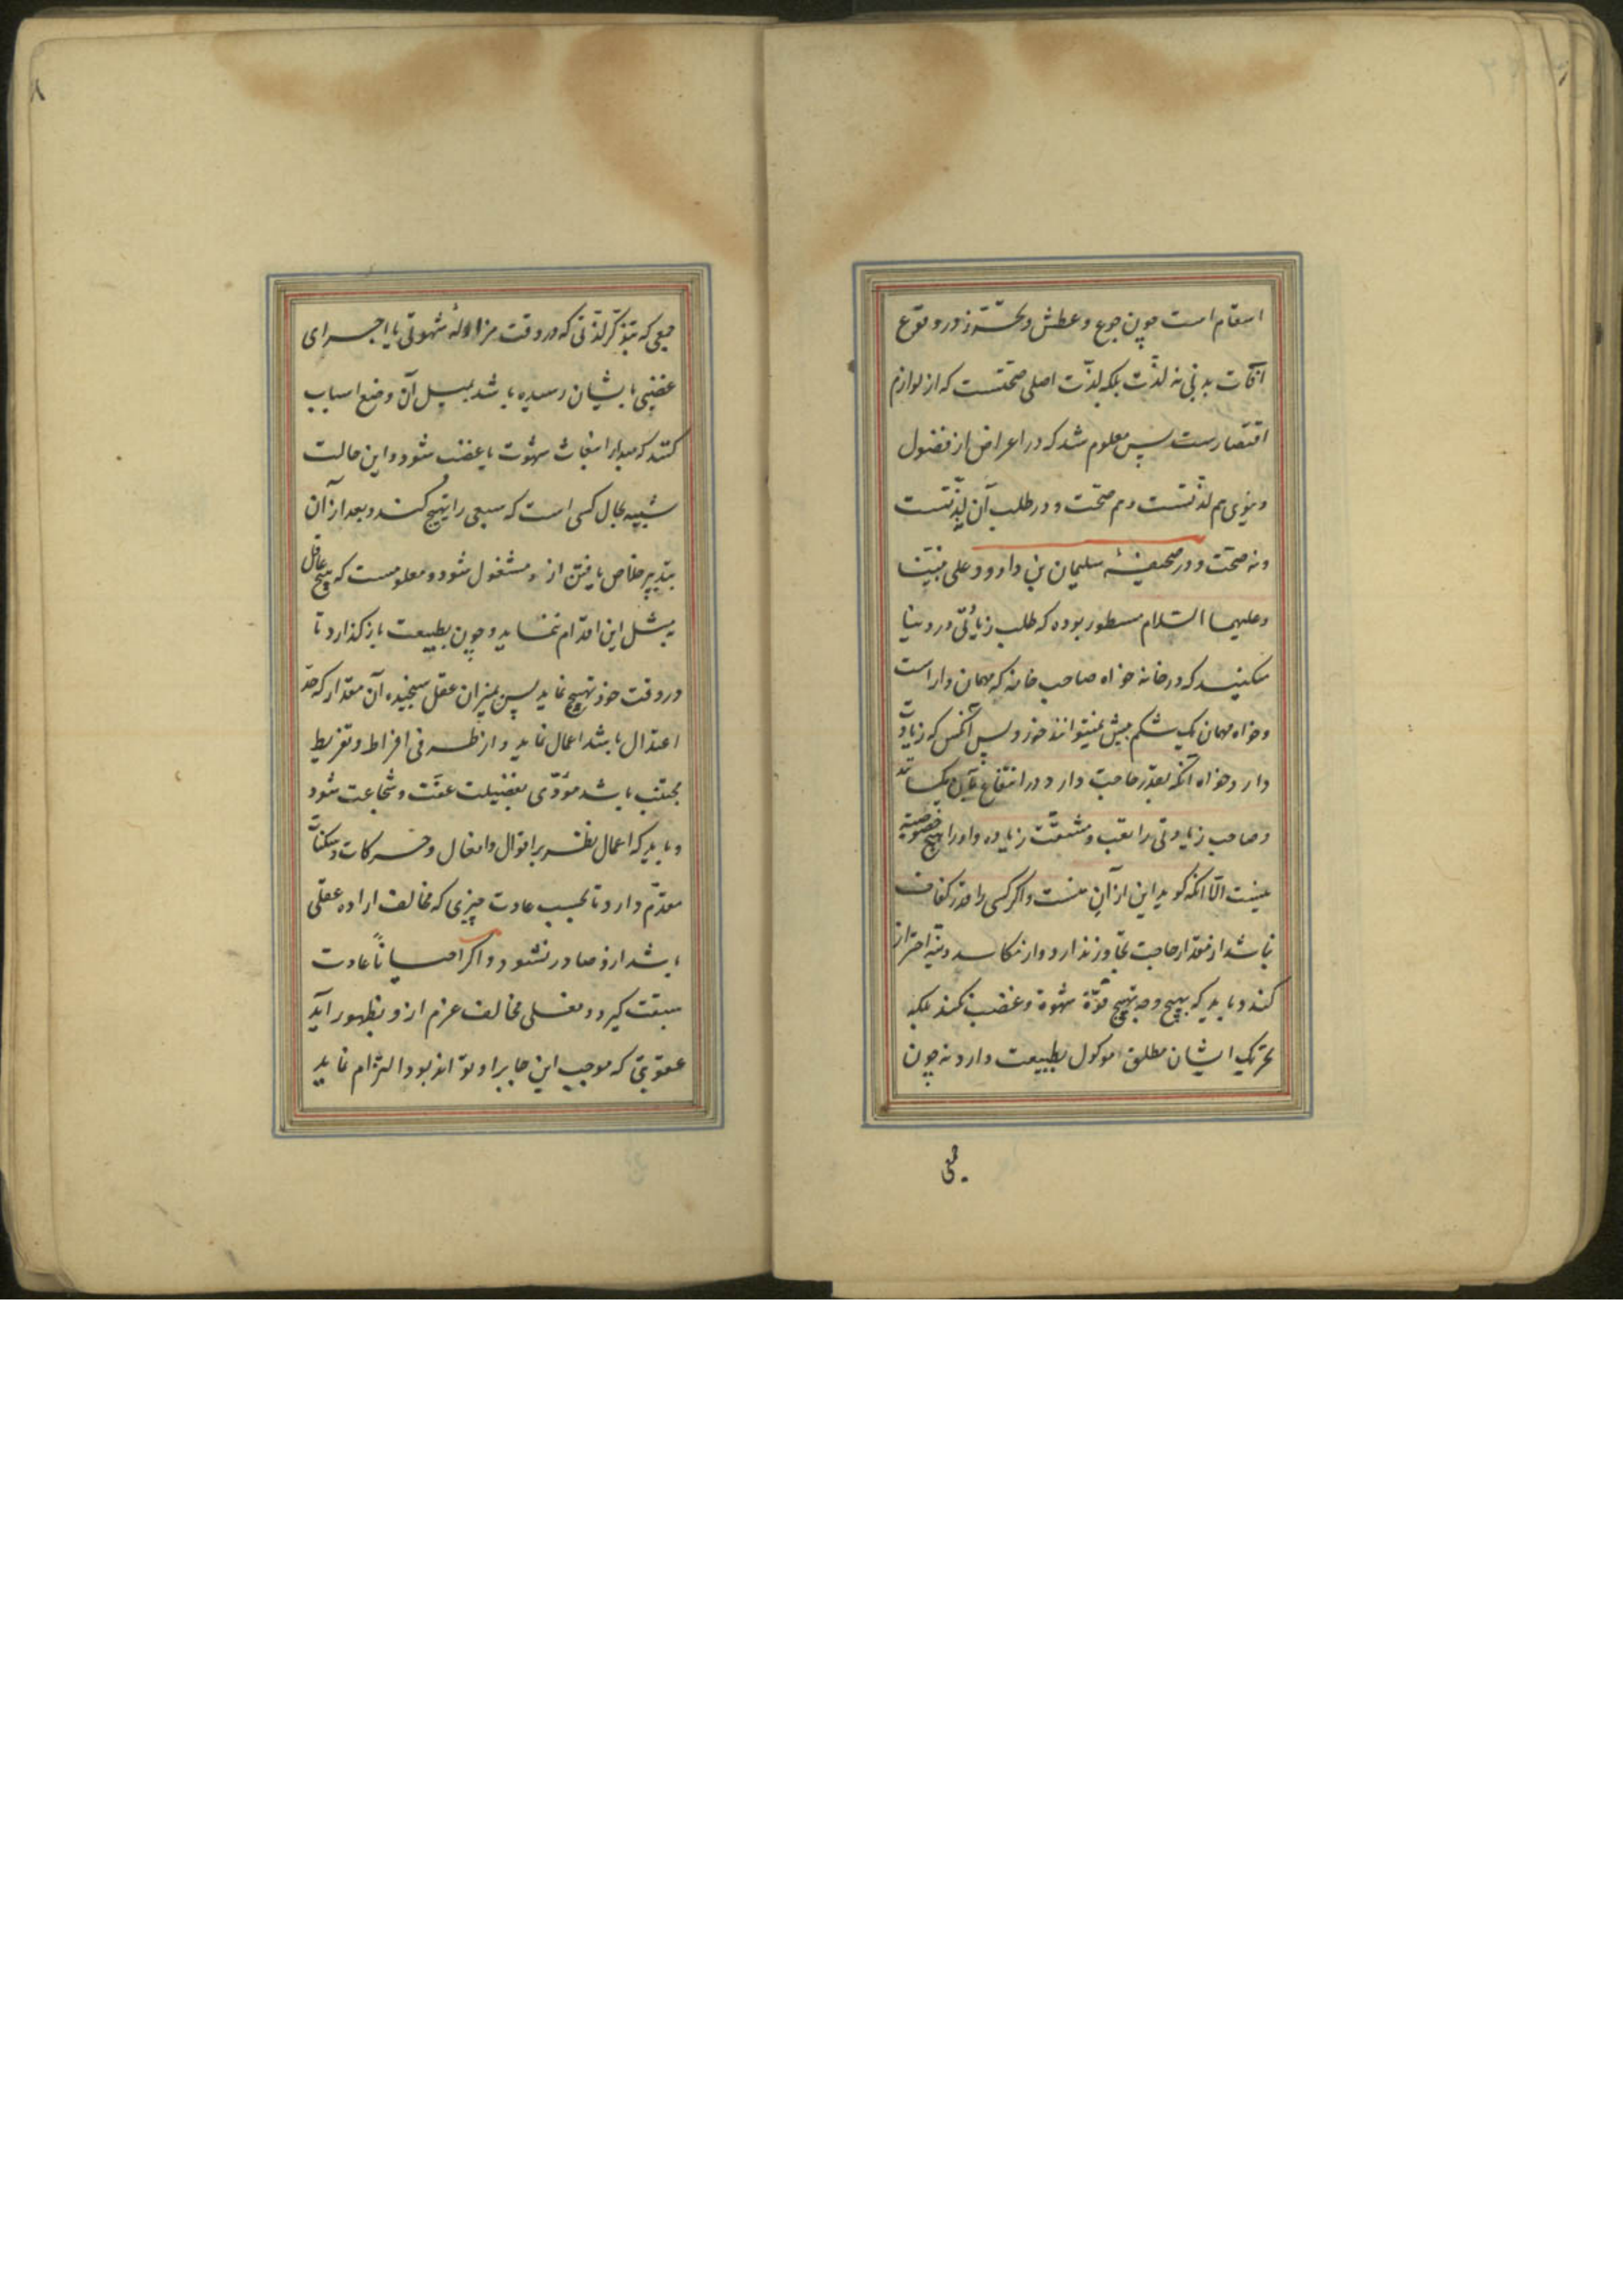 اسقام است چون جوع و عطش و تحرّز از در وقوع
آفات بدنی نه لذّت بلکه لذّت اصلی صحّتست که از لوازم
اقتصارست پس معلوم شد که در اعراض از فضول
دنیوی هم لذّتست و هم صحّت و در طلب آن نه لذّتست
و نه صحّت و در صحیفهٔ سلیمان بن داوود علی نبیّنا
و علیهما السّلام مسطور بوده که طلب زیادتی در دنیا
مکنید که در خانه خواه صاحب خانه که مهمان دار است
و خواه مهمان یک شکم بیش نمیتوانند خورد پس آنکس که زیادت
دارد و خواه آنکه بقدر حاجت دارد در انتفاع بآن یکسانند
و صاحب زیادتی را تعب و مشقّت زیاده و او را هیچ خصوصیّه
نیست الّا آنکه گوید این از آن منست و اگر کسی را قدر کفاف
نباشد از مقدار حاجت تجاوز ندارد و از مکاسب دنیّه احتراز
کند و باید که بهیچ وجه تهییج قوّة شهوة و غضب نکند بلکه
تحریک ایشان مطلق موکول بطبیعت دارد نه چون
جمعی
جمعی که بتذکّر لذّتی که در وقت مزاولهٔ شهوتی یا اجرای
غضبی بایشان رسیده باشد بمیل آن وضع اسباب
کنند که مبدأ انبعاث شهوت یا غضب شود و این حالت
شبیه بحال کسی است که سبعی را تهییج کند و بعد از آن
بتدبیر خلاص یافتن از و مشغول شود و معلومست که هیچ عاقل
بمثل این اقدام ننماید و چون بطبیعت بازگذارد تا
در وقت خود تهییج نماید پس بمیزان عقل سنجیده آن مقدار که حدّ
اعتدال باشد اعمال نماید و از طرفی افراط و تفریط
مجتنب باشد مؤدّی بفضیلت عفّت و شجاعت شود
و باید که اعمال نظر بر اقوال و افعال و حرکات و سکنات
مقدّم دارد تا بحسب عادت چیزی که مخالف اراده عقلی
باشد ازو صادر نشود و اگر احیاناً عادت
سبقت گیرد و فعلی مخالف عزم ازو بظهور آید
عقوبتی که موجب این جابر او تواند بود التزام نماید